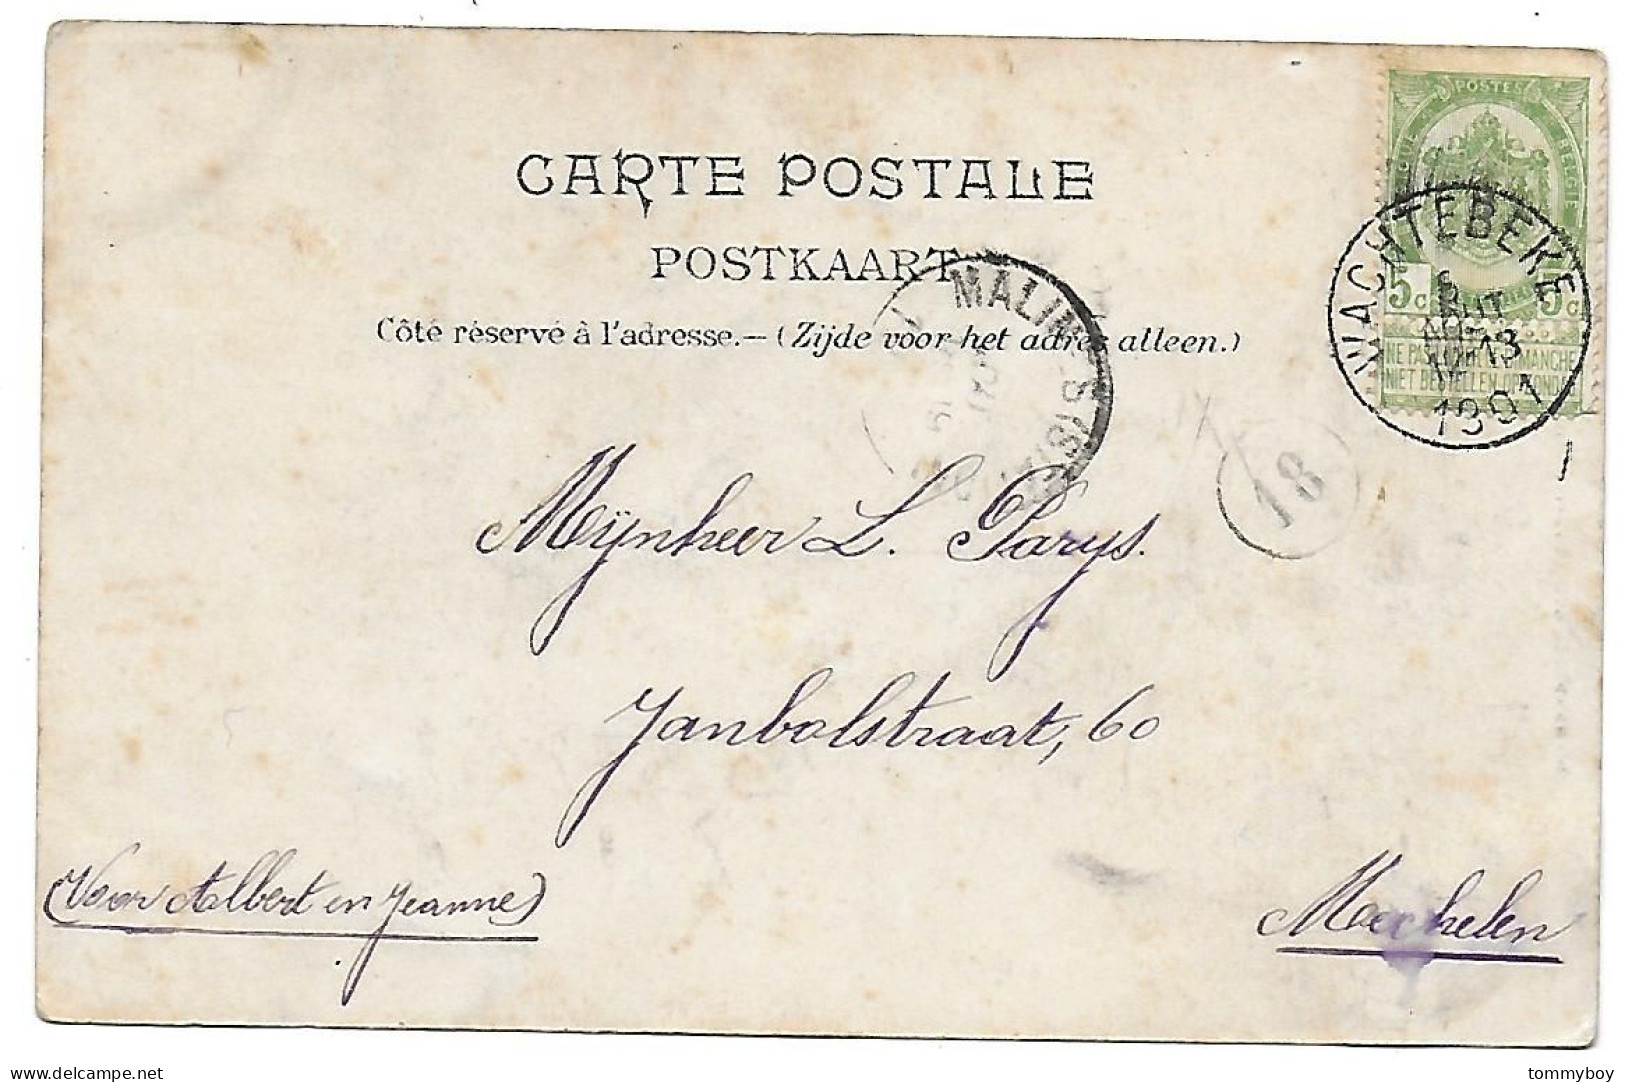 CARTE POSTALE
POSTKAART
Côté réservé à l'adresse.— (Zijde voor het adres alleen.)
POSTES
BELGIE
5c 5c
NIET BESTELLEN OP ZONDAG
WACHTEBEKE
6
AOUT
12-13
1901
MALINES
18
Mÿnheer L. Parys.
Janbolstraat, 60
(Voor Albert en Jeanne)
Mechelen
delcampe.net
tommyboy